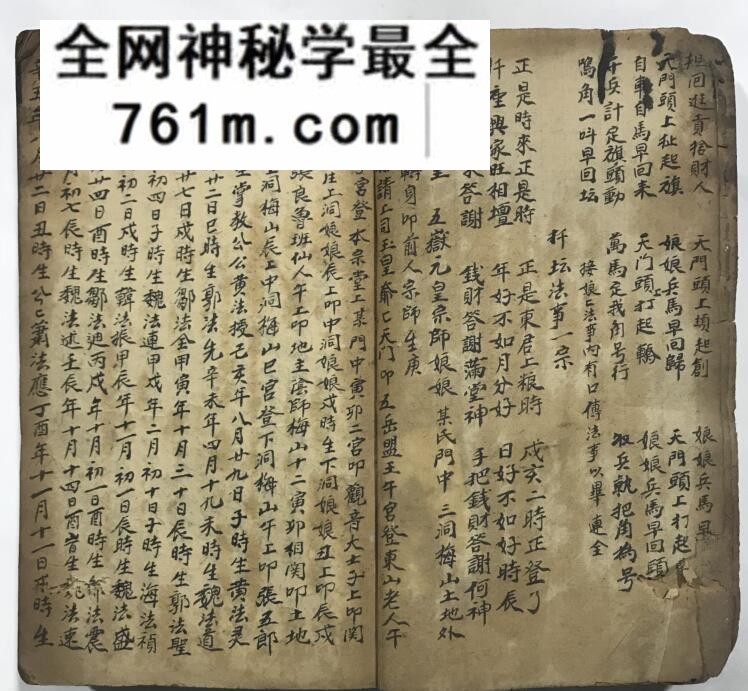 全网神秘学最全
761m.com
担回進貢捨財人 天門頭上頓起創 娘娘兵馬早
天門頭上扯起旗 娘娘兵馬早回歸 天門頭上打起
自車自馬早回来 天门頭打起鞽 娘娘兵馬早回頭
兵計足旗頭動 萬馬足我角号行 收兵就把角為号
鳴角一吽早回坛 接娘亡法事内有口傳法事以畢 連全
扦坛法事一宗
正是時來正是時 正是東君上粮時 戍亥二時正登了
扦座興家旺相壇 年好不如月分好 日好不如好時辰
答謝 錢財答謝滿堂神 手把錢財答謝何神
五嶽元皇宗師娘娘 某氏門中 三洞梅山土地外
轉身卯前人宗師生庚
請上司玉皇 天门卯 五岳盟王午宫登東山老人午
宫登本宗堂上某門中寅卯二宫卯觀音大士子上卯関
上洞娘娘辰上卯中洞娘娘戍時生下洞娘娘丑上卯辰戍
良魯班仙人午上卯地主陰師梅山十二寅卯相関卯土地
上洞梅山辰上中洞梅山巳宫登下洞梅山午上卯張五郎
掌教公公黄法授己亥年八月廿九日子時生黄法灵
廿二日巳時生郭法先辛未年四月十九未時生魏法道
廿七日戍時生鄒法全甲寅年十月三十日辰時生郭法聖
初四日子時生魏法運甲戍年二月初十日子時生海法禎
初二日戍時生韓法振甲辰年十一月初一日辰時生魏法盛
廿四日酉時生鄒法迎丙戍年十月初一日酉時生 法震
月初七辰時生魏法述壬辰年十月十四日酉 生 法速
辛丑年 月廿二日丑時生 蕭法應丁酉年十一月十一日 時生